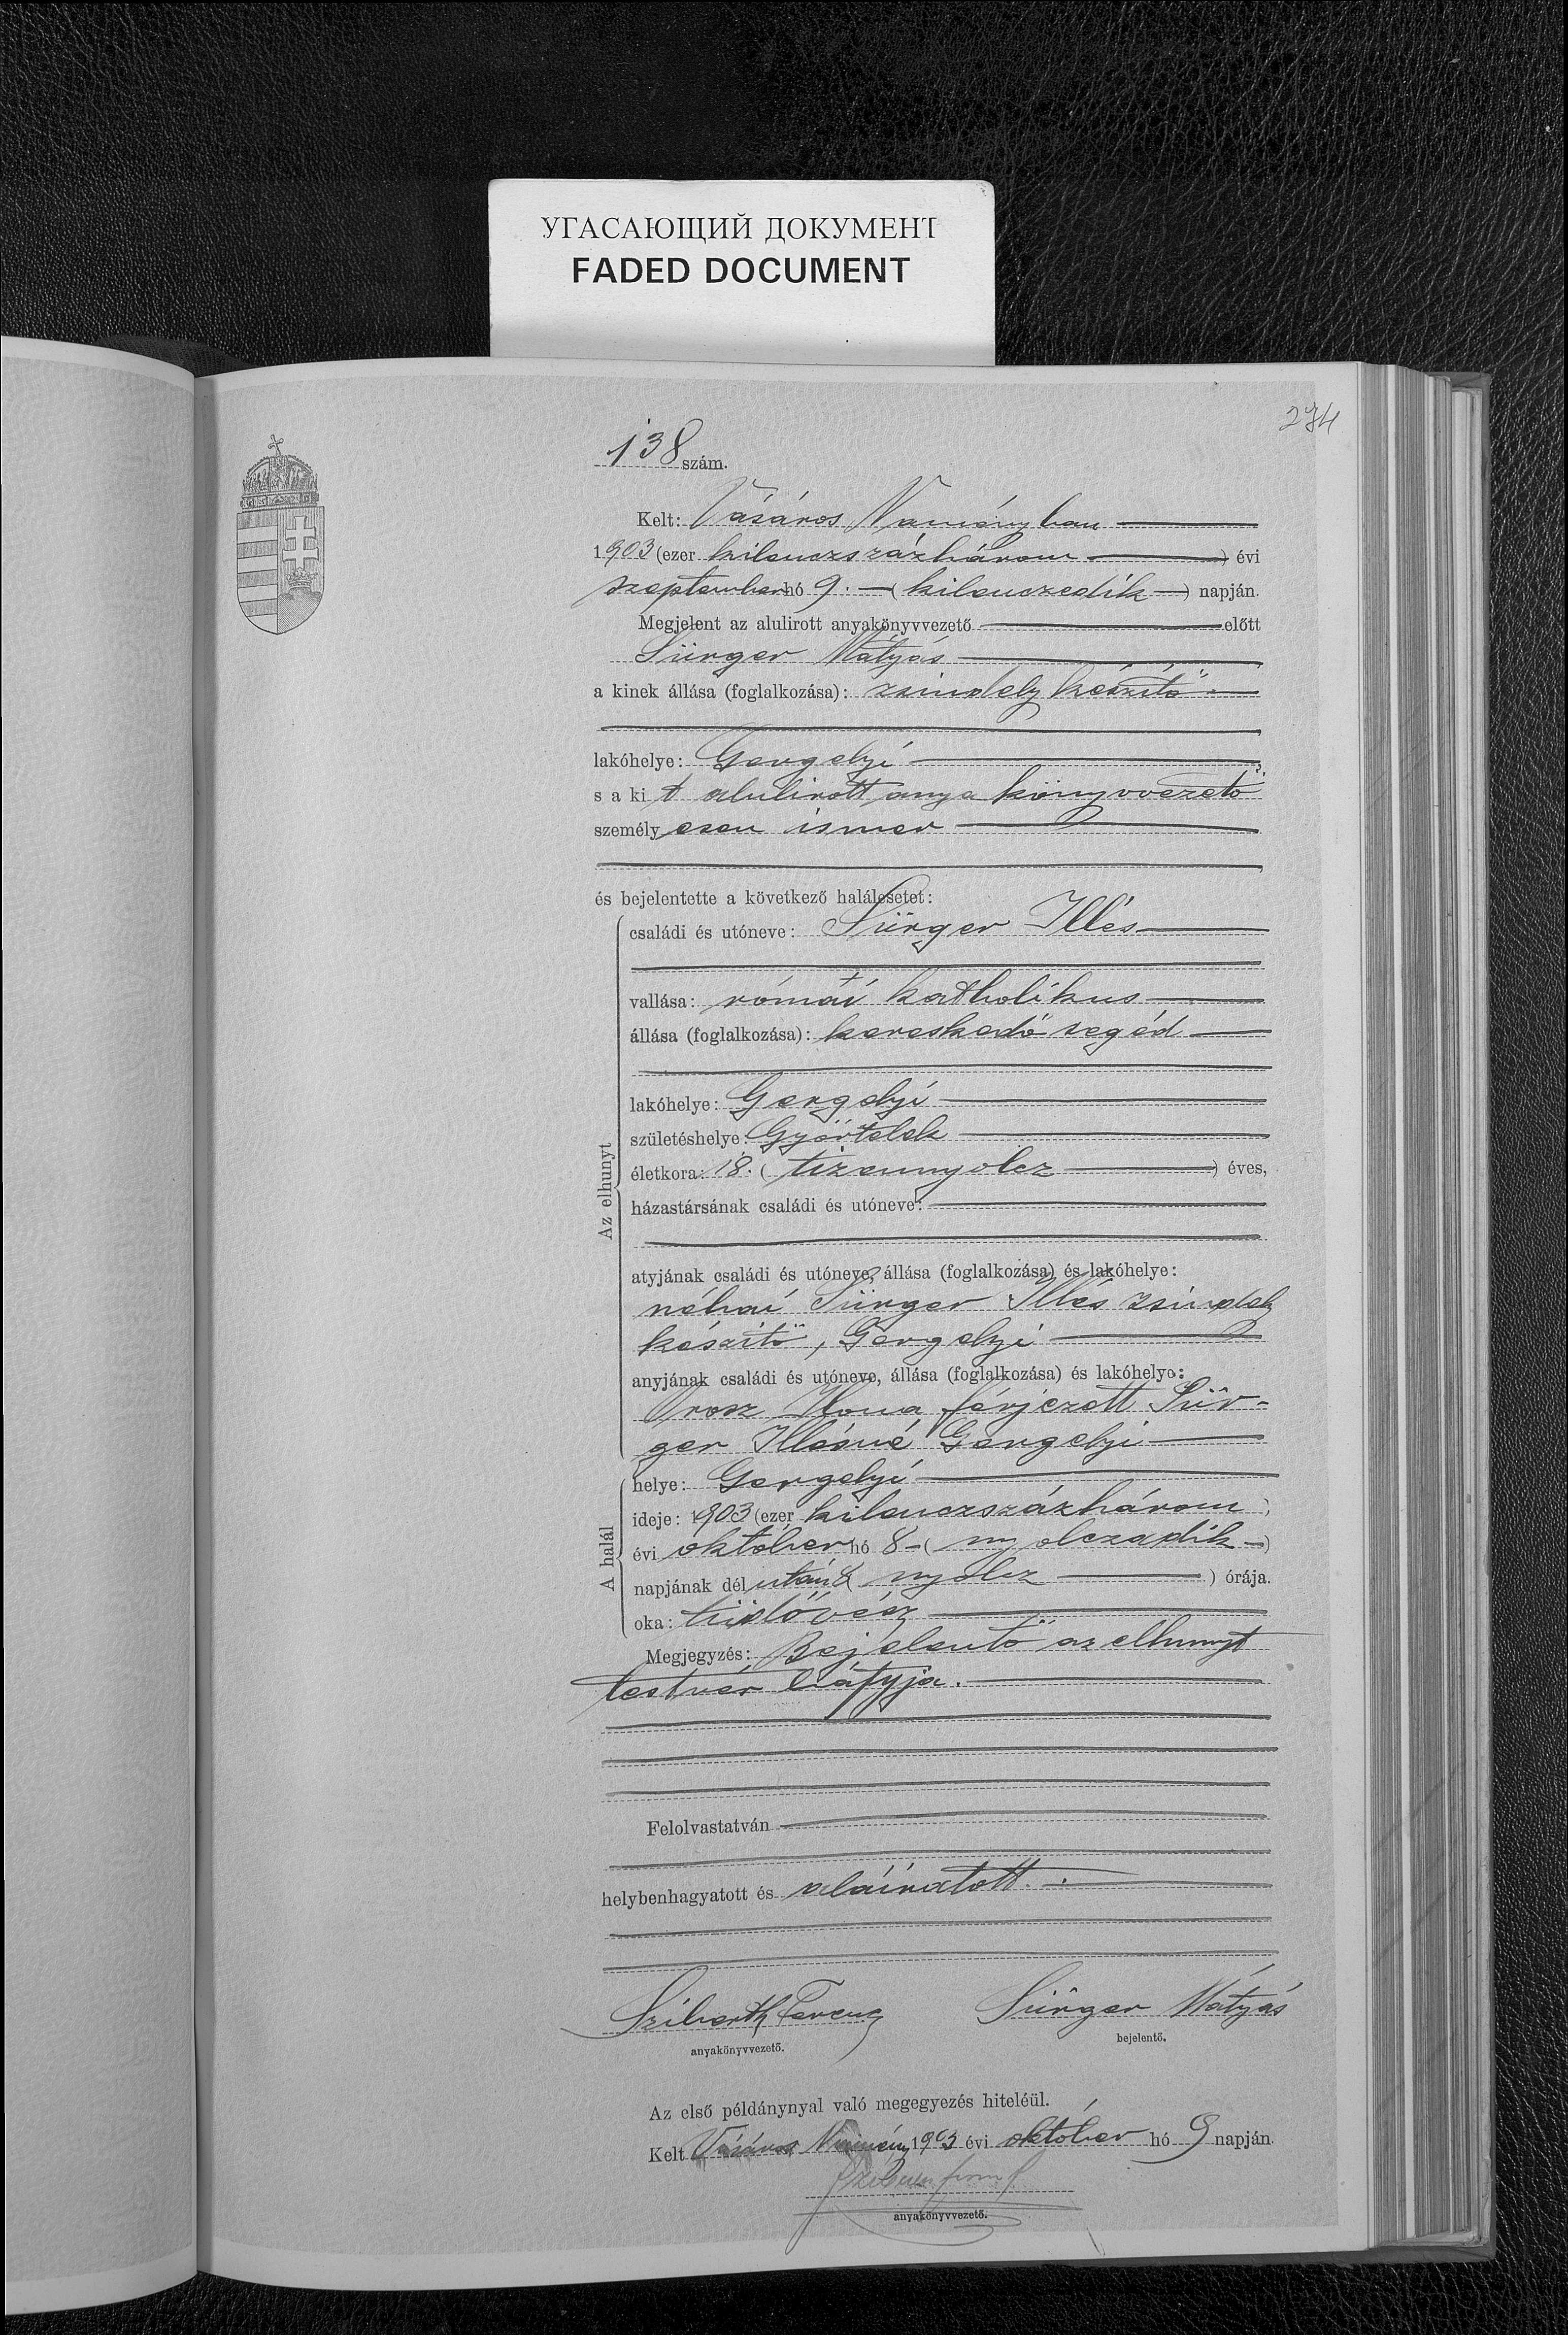 УГАСАЮЩИЙ ДОКУМЕНТ
FADED DOCUMENT
274
138 szám.
Kelt: Vásáros Naményban
1903 (ezer kilenczszázhárom) évi
szeptember hó 9. (kilenczedik) napján.
Megjelent az alulirott anyakönyvvezető előtt
Sürger Mátyás
a kinek állása (foglalkozása): zsindely készítő
lakóhelye: Gergelyi
s a kit alulirott anyakönyvvezető
személyesen ismer
és bejelentette a következő halálesetet:
Az elhunyt
családi és utóneve: Sürger Illés
vallása: római katholikus
állása (foglalkozása): kereskedő segéd
lakóhelye: Gergelyi
születéshelye: Győrtelek
életkora: 18. (tizennyolcz) éves,
házastársának családi és utóneve:
atyjának családi és utóneve, állása (foglalkozása) és lakóhelye:
néhai Sürger Illés zsindely
készítő, Gergelyi
anyjának családi és utóneve, állása (foglalkozása) és lakóhelye:
Orosz Ilona férjezett Sür-
ger Illésné Gergelyi
A halál
helye: Gergelyi
ideje: 1903 (ezer kilenczszázhárom)
évi október hó 8 (nyolczadik)
napjának dél után 8 nyolcz) órája.
oka: tüdővész
Megjegyzés: Bejelentő az elhunyt
testvér bátyja.
Felolvastatván
helybenhagyatott és aláíratott.
Sziberth Ferencz
Sürger Mátyás
anyakönyvvezető.
bejelentő.
Az első példánynyal való megegyezés hiteléül.
Kelt Vásáros Namény 1903 évi október hó 9 napján.
anyakönyvvezető.